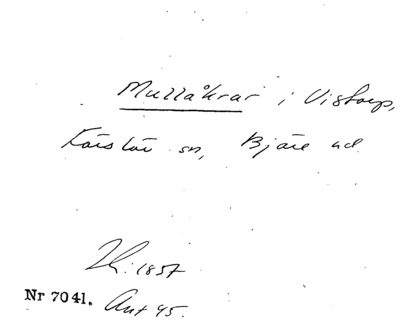 Mullåkrar i Vistorp,
Förslöv sn, Bjäre hd
Th: 1857
Nr 7041. Ant 45.